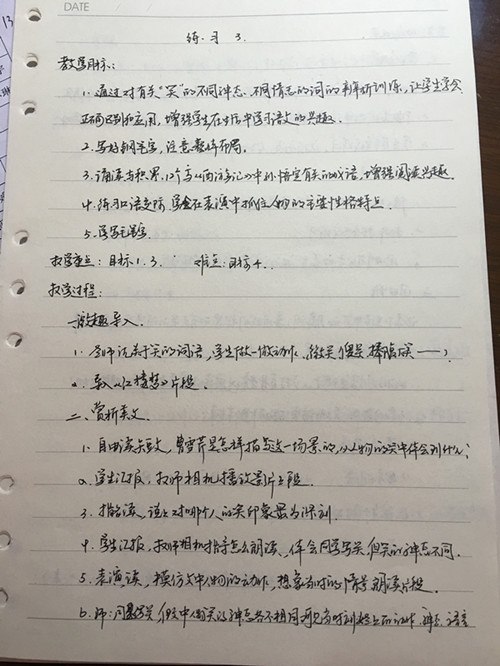 DATE / /
13
练习 3.
教学目标:
1. 通过对有关"笑"的不同神态、不同情态的词的辨析训练,让学生学会
正确区别和应用,增强学生在生活中学习语文的兴趣.
2. 写好钢笔字,注意整体布局.
3. 诵读与积累12个与《西游记》中孙悟空有关的成语,增强阅读兴趣.
4. 练习口语交际 学会在表演中抓住人物的主要性格特点.
5. 学写毛笔字.
教学重点:目标1.3. 难点:目标4.
教学过程:
一、激趣导入.
1. 老师说关于笑的词语,学生做一做动作.(微笑 傻笑 捧腹大笑——)
2. 导入《红楼梦》片段.
二、赏析美文.
1. 自由读短文,曹雪芹是怎样描写这一场景的,从人物的笑中体会到什么?
2. 学生汇报,教师相机播放影片片段.
3. 指名读,说说对哪个人的笑印象最为深刻.
4. 学生汇报,教师相机指导怎么朗读,体会同学写笑 但笑的神态不同.
5. 表演读,模仿文中人物的动作,想象当时的情景朗读片段.
6. 师:同是写笑,但文中的笑的神态各不相同 可见 动作、神态、语言